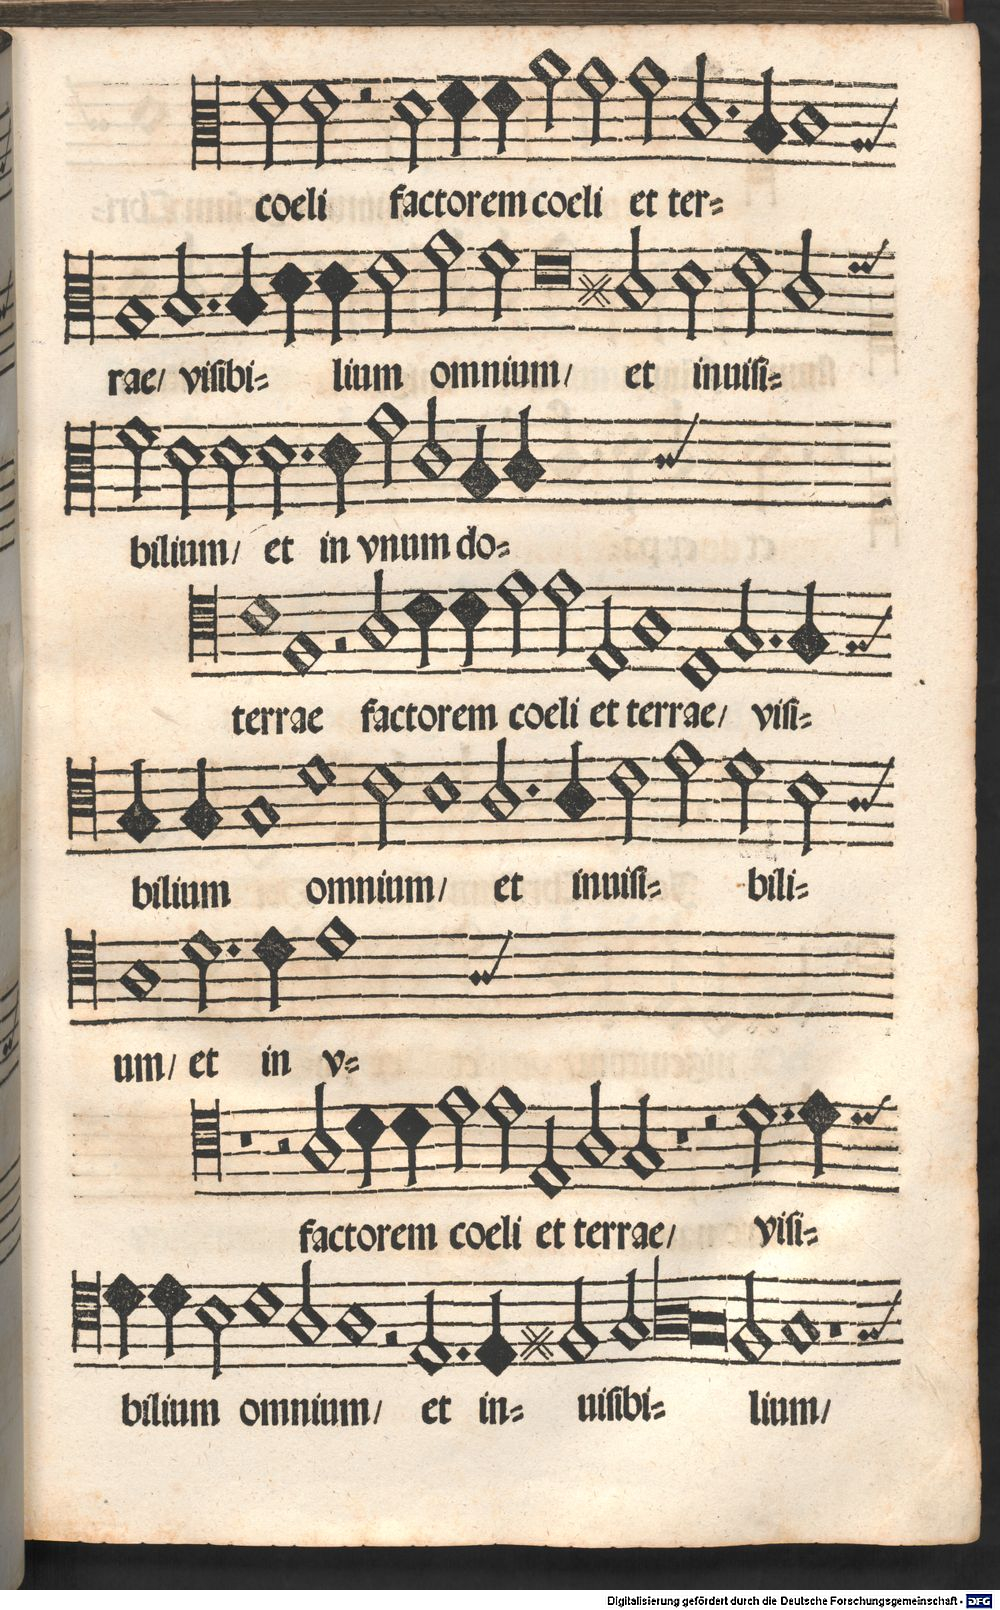 coeli factorem coeli et ter=
rae/ visibi= lium omnium/ et inuisi=
bilium/ et in vnum do=
terrae factorem coeli et terrae/ visi=
bilium omnium/ et inuisi= bili=
um/ et in v=
factorem coeli et terrae/ visi=
bilium omnium/ et in= uisibi= lium/
Digitalisierung gefördert durch die Deutsche Forschungsgemeinschaft - DFG